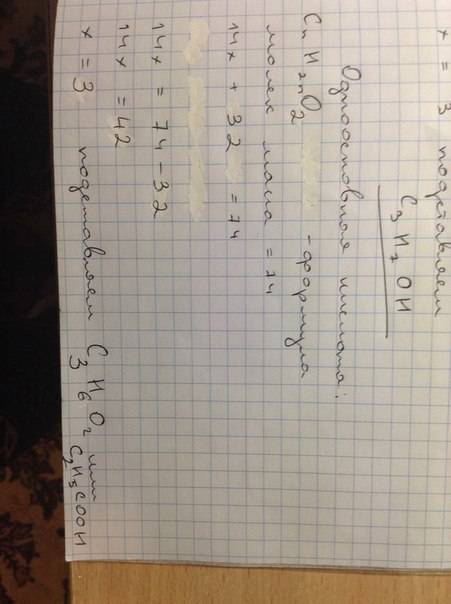 x = 3 подставляем
C3H7OH
Одноосновная кислота:
CnH2nO2 - формула
молек масса = 74
14x + 32 = 74
14x = 74 - 32
14x = 42
x = 3 подставляем C3H6O2 или
C2H5COOH